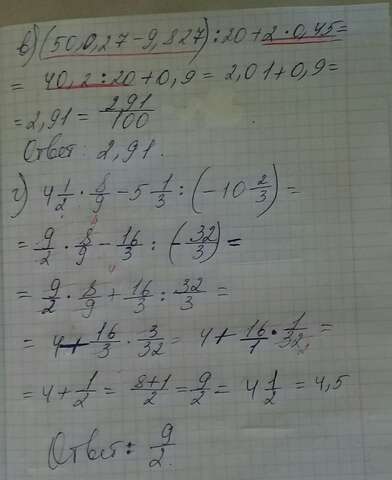 в) (50,0,27-9,827):20+2·0,45=
= 40,2:20+0,9= 2,01+0,9=
=2,91= 291/100
Ответ: 2,91.
г) 4 1/2 · 8/9 - 5 1/3 : (-10 2/3) =
= 9/2 · 8/9 - 16/3 : (- 32/3) =
= 9/2 · 8/9 + 16/3 : 32/3 =
= 4 + 16/3 · 3/32 = 4 + 16/1 · 1/32 =
= 4 + 1/2 = 8+1/2 = 9/2 = 4 1/2 = 4,5
Ответ: 9/2.